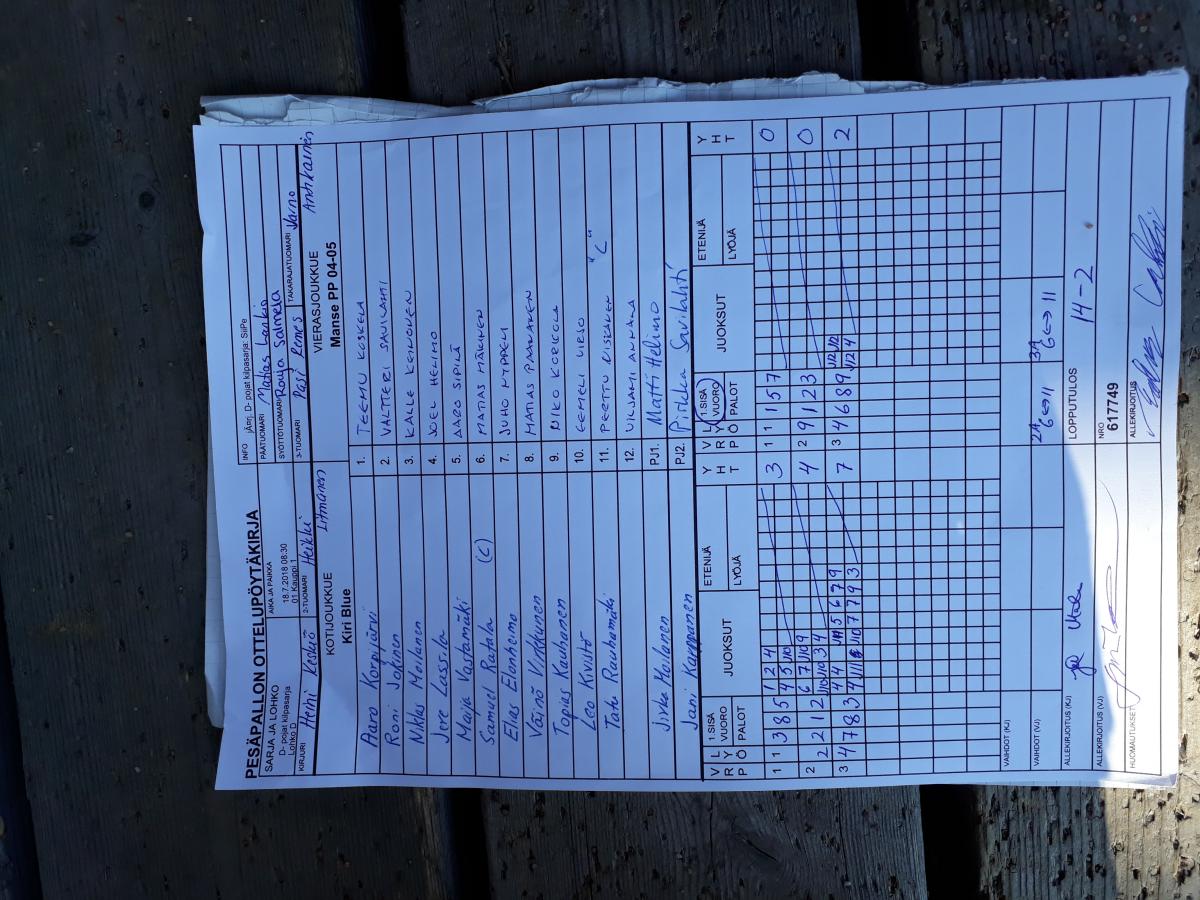 PESÄPALLON OTTELUPÖYTÄKIRJA
SARJA JA LOHKO
D- pojat kilpasarja
Lohko D
AIKA JA PAIKKA
18.7.2018 08:30
01 Kauppi 1
INFO jÄrj. D- pojat kilpasarja: SiiPe
PÄÄTUOMARI Matias Lenkio
SYÖTTÖTUOMARI Ronja Salmela
KIRJURI Heini Keskiö
2-TUOMARI Heikki Litmanen
3-TUOMARI Pasi Remes
TAKARAJATUOMARI Jarno Anhkainen
KOTIJOUKKUE
Kiri Blue
VIERASJOUKKUE
Manse PP 04-05
Aaro Korpijärvi 1. TEEMU KOSKELA
Roni Jokinen 2. VALTTERI SAVILAHTI
Niklas Meilanen 3. KALLE KEINONEN
Jere Lassila 4. JOEL HELIMO
Maija Vastamäki 5. AARO SIPILÄ
Samuel Ratala (C) 6. MATIAS MÄKINEN
Elias Elonheimo 7. JUHO HYPPÖLI
Väinö Virkkunen 8. MATIAS PAANANEN
Topias Kauhanen 9. NIKO KORKOLA
Leo Kivistö 10. EEMELI UKSO
Tatu Rauhamäki 11. PERTTU NISKANEN "C"
12. VILJAMI ANNALA
Jirka Meilanen PJ1. Matti Helimo
Jani Kamppanen PJ2. Pirkka Savilahti
V R P L Y Ö 1.SISÄ VUORO PALOT JUOKSUT ETENIJÄ LYÖJÄ Y H T
V R P L Ö 1.SISÄ VUORO PALOT JUOKSUT ETENIJÄ LYÖJÄ Y H T
1 1 3 8 5 1 2 4 3 1 1 1 5 7 0
4 5 J10
2 2 2 1 2 6 7 J10 9 4 2 9 1 2 3 0
J10 J10 3 4
3 4 7 8 3 4 4 J11 5 6 7 9 7 3 4 6 8 9 J12 J12 2
J10 7 7 9 3 J12 4
VAIHDOT (KJ)
VAIHDOT (VJ) 2A 6↔11 3A 6↔11
ALLEKIRJOITUS (KJ)
LOPPUTULOS 14-2
ALLEKIRJOITUS (VJ)
NRO
617749
HUOMAUTUKSET
ALLEKIRJOITUS